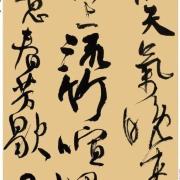 天氣晚來
上流竹喧
意春芳歇